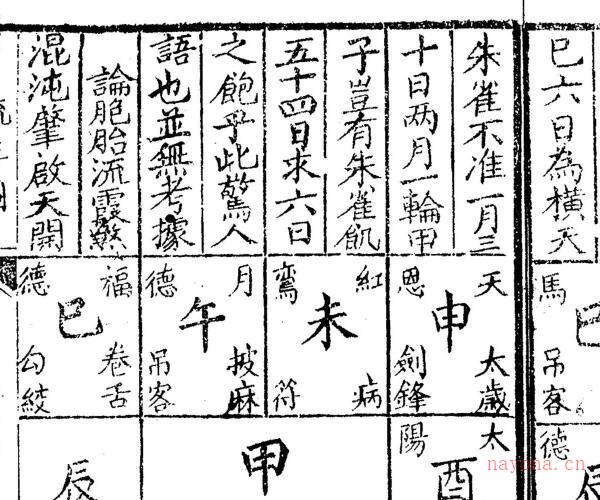 巳六日為橫天
朱雀不准一月三
十日两月一輪甲
子豈有朱雀飢
五十四日求六日
之飽乎此驚人
語也並無考據
論胞胎流霞煞
混沌肇啟天開
巳
馬
吊客
天
太歲
申
恩
劍鋒
紅
病
未
鸞
符
月
披麻
午
德
吊客
福
卷舌
巳
德
勾絞
德
太
酉
陽
甲
辰
nayona.cn